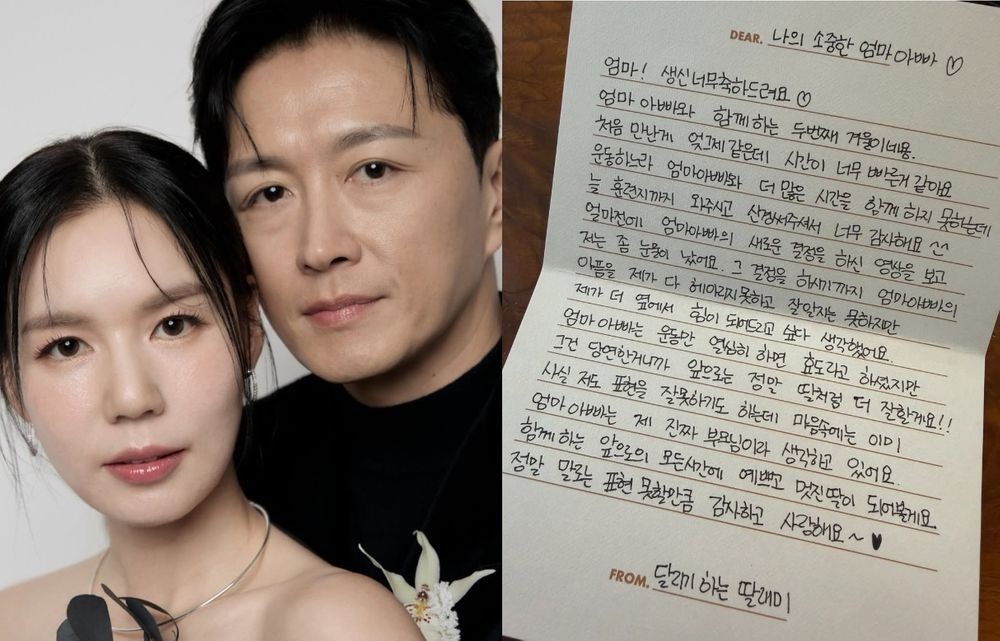 DEAR. 나의 소중한 엄마아빠 ♡
엄마! 생신너무축하드려요 ♡
엄마 아빠와 함께하는 두번째 겨울이네용.
처음 만난게 엊그제 같은데 시간이 너무 빠른거 같아요
운동하느라 엄마아빠와 더 많은 시간을 함께 하지 못하는데
늘 훈련지까지 와주시고 신경써주셔서 너무 감사해요 ^^
얼마전에 엄마아빠의 새로운 결정을 하신 영상을 보고
저는 좀 눈물이 났어요. 그 결정을 하시기까지 엄마아빠의
아픔을 제가 다 헤아리지못하고 잘알지는 못하지만
제가 더 옆에서 힘이 되어드리고 싶다 생각했어요.
엄마아빠는 운동만 열심히 하면 효도라고 하셨지만
그건 당연한거니까 앞으로는 정말 딸처럼 더 잘할게요!!
사실 저도 표현을 잘못하기도 하는데 마음속에는 이미
엄마아빠는 제 진짜 부모님이라 생각하고 있어요.
함께하는 앞으로의 모든시간에 예쁘고 멋진딸이 되어볼게요.
정말 말로는 표현 못할만큼 감사하고 사랑해요~ ♥
FROM. 달리기 하는 딸래미